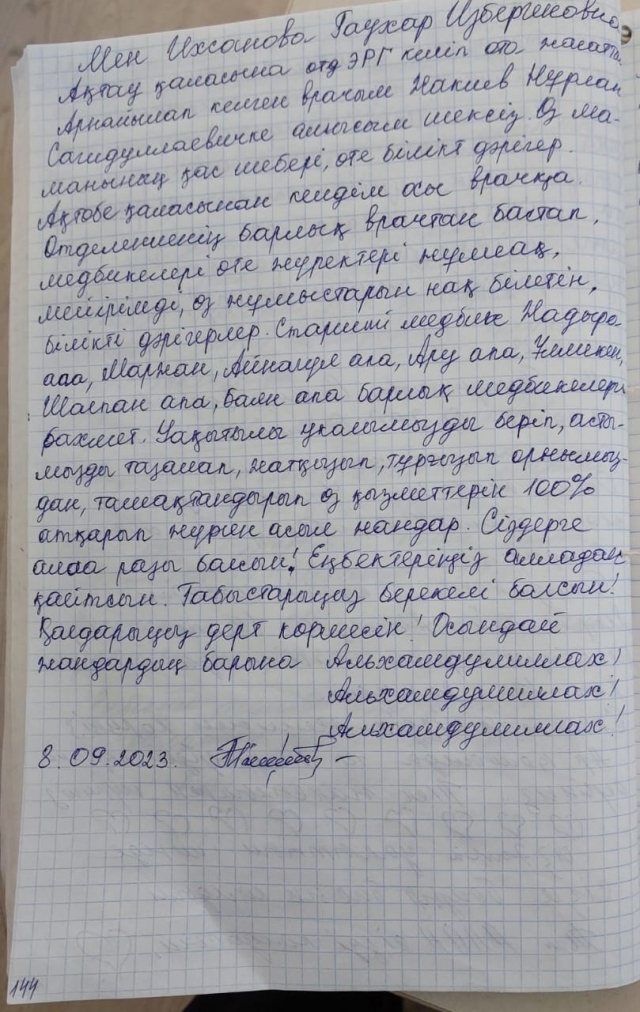 Мен Ихсанова Гаухар Избергеновна
Ақтау қаласына отд ЭРГ келіп ота жасатты.
Арнайылап келген врачым Накиев Нурлан
Сагидуллаевичке алғысым шексіз. Өз ма-
манының қас шебері, өте білікті дәрігер.
Ақтөбе қаласынан келдім осы врачқа.
Отделениенің барлық врачтан бастап,
медбикелері өте жүректері жұмсақ,
мейірімді, өз жұмыстарын нақ білетін,
білікті дәрігерлер. Старший медбике Надыра
апа, Маржан, Айнагүл апа, Ару апа, Үлмекен,
Шолпан апа, Баян апа барлық медбикелерге
рахмет. Уақытылы уколымызды беріп, асты-
мызды тазалап, жатқызып, тұрғызып орнымыз-
дан, тамақтандырып өз қызметтерін 100%
атқарып жүрген асыл жандар. Сіздерге
алла разы болсын! Еңбектеріңіз алладан
қайтсын. Табыстарыңыз берекелі болсын!
Қолдарыңыз дерт көрмесін! Осындай
жандардың барына Альхамдулиллах!
Альхамдулиллах!
Альхамдулиллах!
8.09.2023.
144